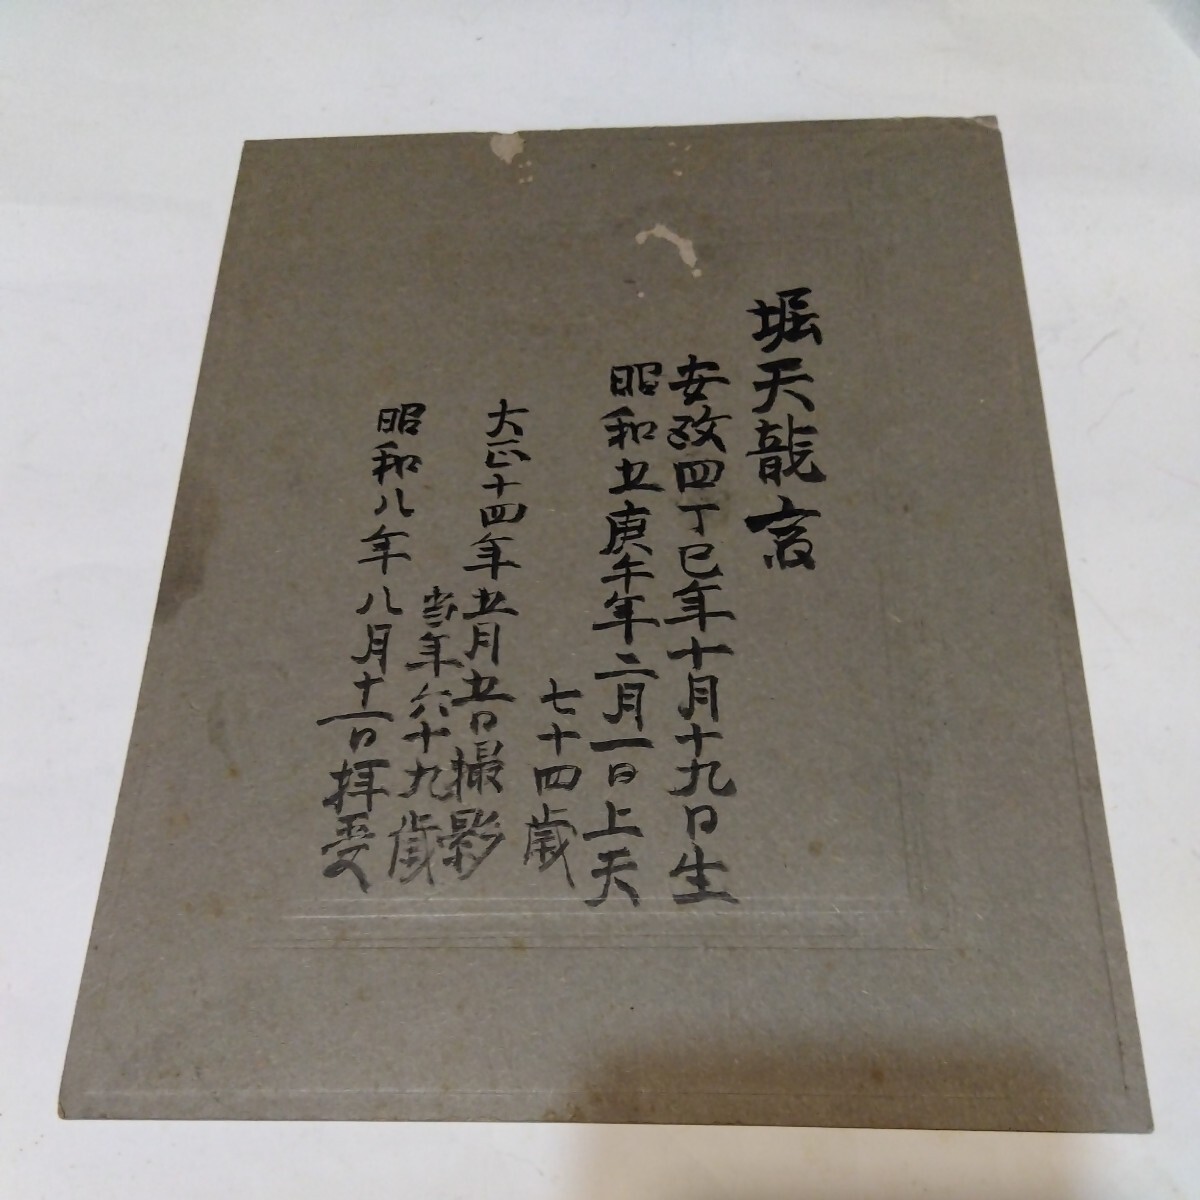 堀天龍
安政四丁巳年十月十九日生
昭和五庚午年二月一日上天
七十四歳
大正十四年五月五日撮影
当年六十九歳
昭和八年八月十一日拝受